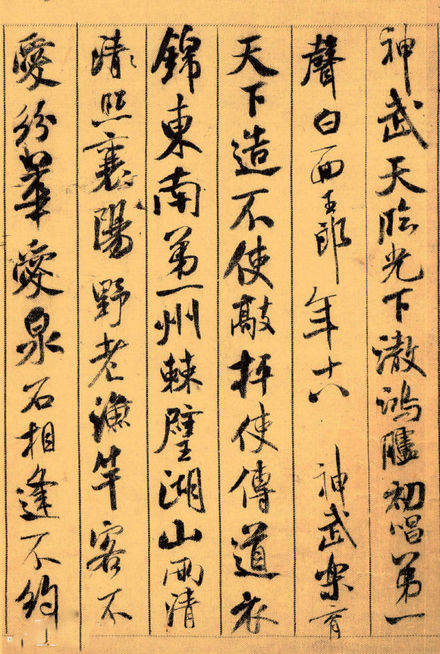 神武天臨光下澈鴻臚初唱第一
聲白面王郎年十八 神武樂育
天下造不使敲枰使傳道衣
錦東南第一州棘璧湖山兩清
清照襄陽野老漁竿客不
愛紛華愛泉石相逢不約